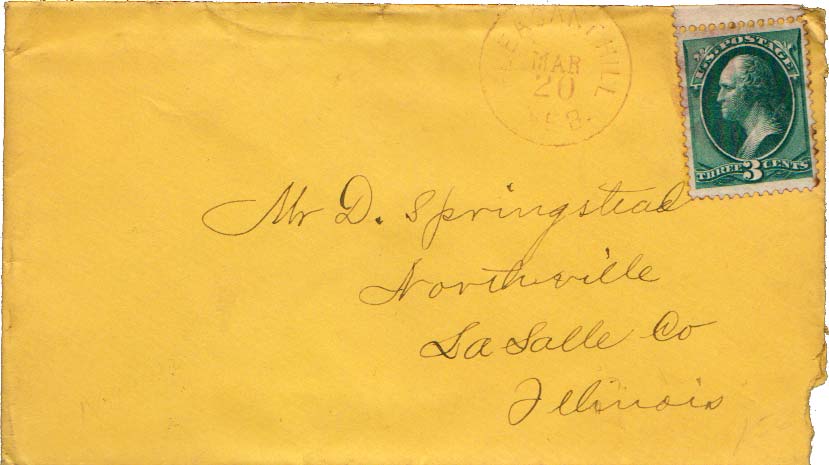 PLEASANT HILL
MAR
20
NEB.
U.S. POSTAGE
THREE 3 CENTS
Mr D. Springstead
Northville
La Salle Co
Illinois